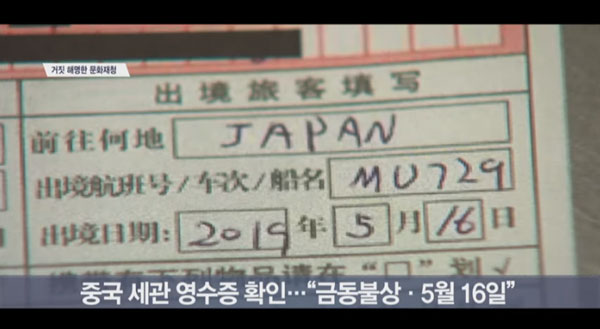 거짓 해명한 문화재청
出境旅客填写
前往何地 JAPAN
出境航班号/车次/船名 MU729
出境日期: 2019 年 5 月 16 日
物品请在“□”划√
중국 세관 영수증 확인…“금동불상·5월 16일”